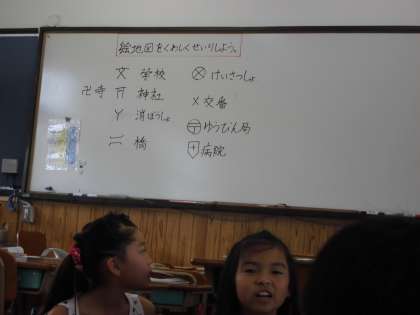 絵地図をくわしくせいりしよう。
文 学校
卍寺 神社
消ぼうしょ
橋
けいさつしょ
X 交番
ゆうびん局
病院